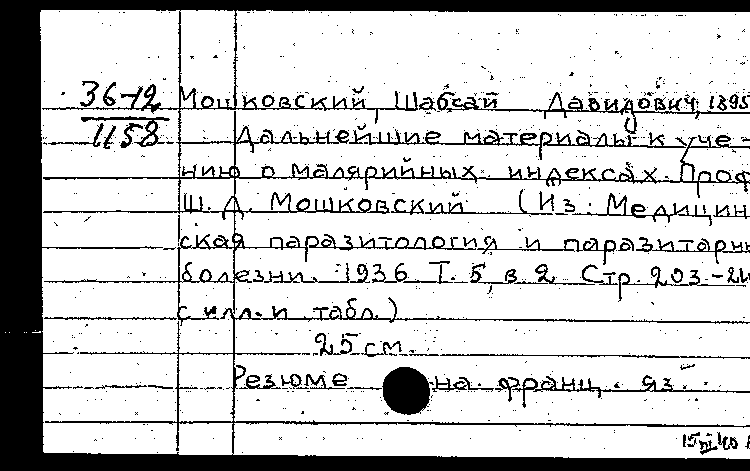 36-12
1158
Мошковский, Шабсай Давидович, 1895
Дальнейшие материалы к уче-
нию о малярийных индексах. Проф
Ш. Д. Мошковский (Из: Медицин
ская паразитология и паразитарн
болезни. 1936 Т. 5, в. 2 Стр. 203-
с илл. и табл.)
25 см.
Резюме на франц. яз.